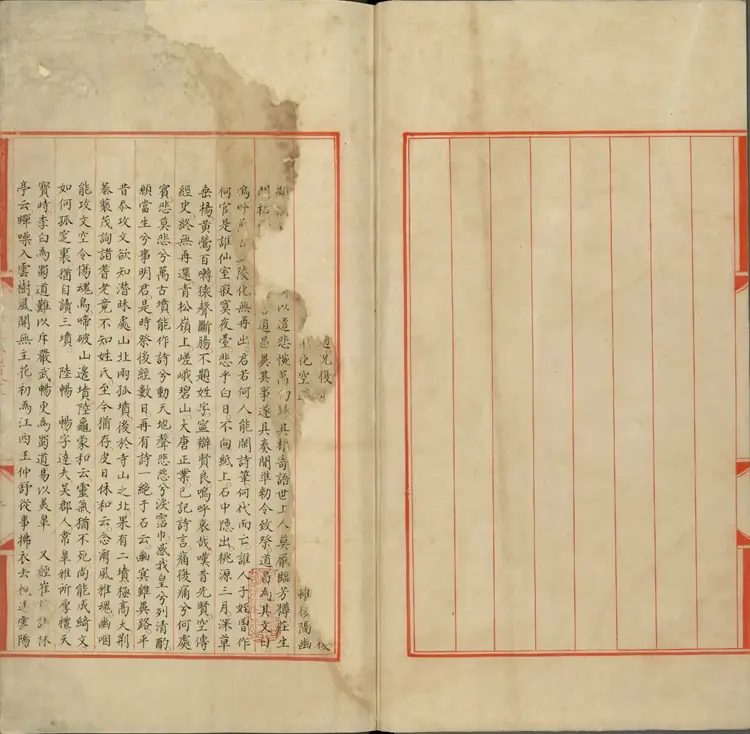 雖後隔幽
以遣悲惋萬
世上人莫厭臨芳樽莊生
道昌異其事遂具奏聞準勅令致祭道昌為其文曰
嗚呼陵化無再出君若何人能閑詩筆何代而亡誰人子姪曾作
何官是誰仙室寂寞夜臺悲乎白日不向紙上石中隱出桃源三月深草
垂楊黃鶯百囀猿聲斷腸不題姓字寧辯賢良嗚呼哀哉嘆昔先賢空傳
經史終無再還青松嶺上嵯峨碧山大唐正業已記詩言痛復痛兮何處
賓悲莫悲兮萬古墳能作詩兮動天地聲悲悲兮淚霑巾感我皇兮列清酌
願當生兮事明君是時祭後經數日再有詩一絕于石云幽冥雖異路平
昔忝攻文欲知潛昧處山北兩孤墳後於寺山之北果有二墳極高大荊
蓁叢茂詢諸耆老竟不知姓氏至今猶存皮日休和云念爾風雅魂幽咽
能攻文空令傷魂鳥啼破山邊墳陸龜蒙和云靈氣猶不死尚能成綺文
如何孤窆裏猶自讀三墳 陸暢 暢字達夫吳郡人常韋雅所厚禮天
寶時李白為蜀道難以斥嚴武暢更為蜀道易以美皋 又經崔諫林
亭云蟬噪入雲樹風開無主花初為江西王仲舒從事拂衣去